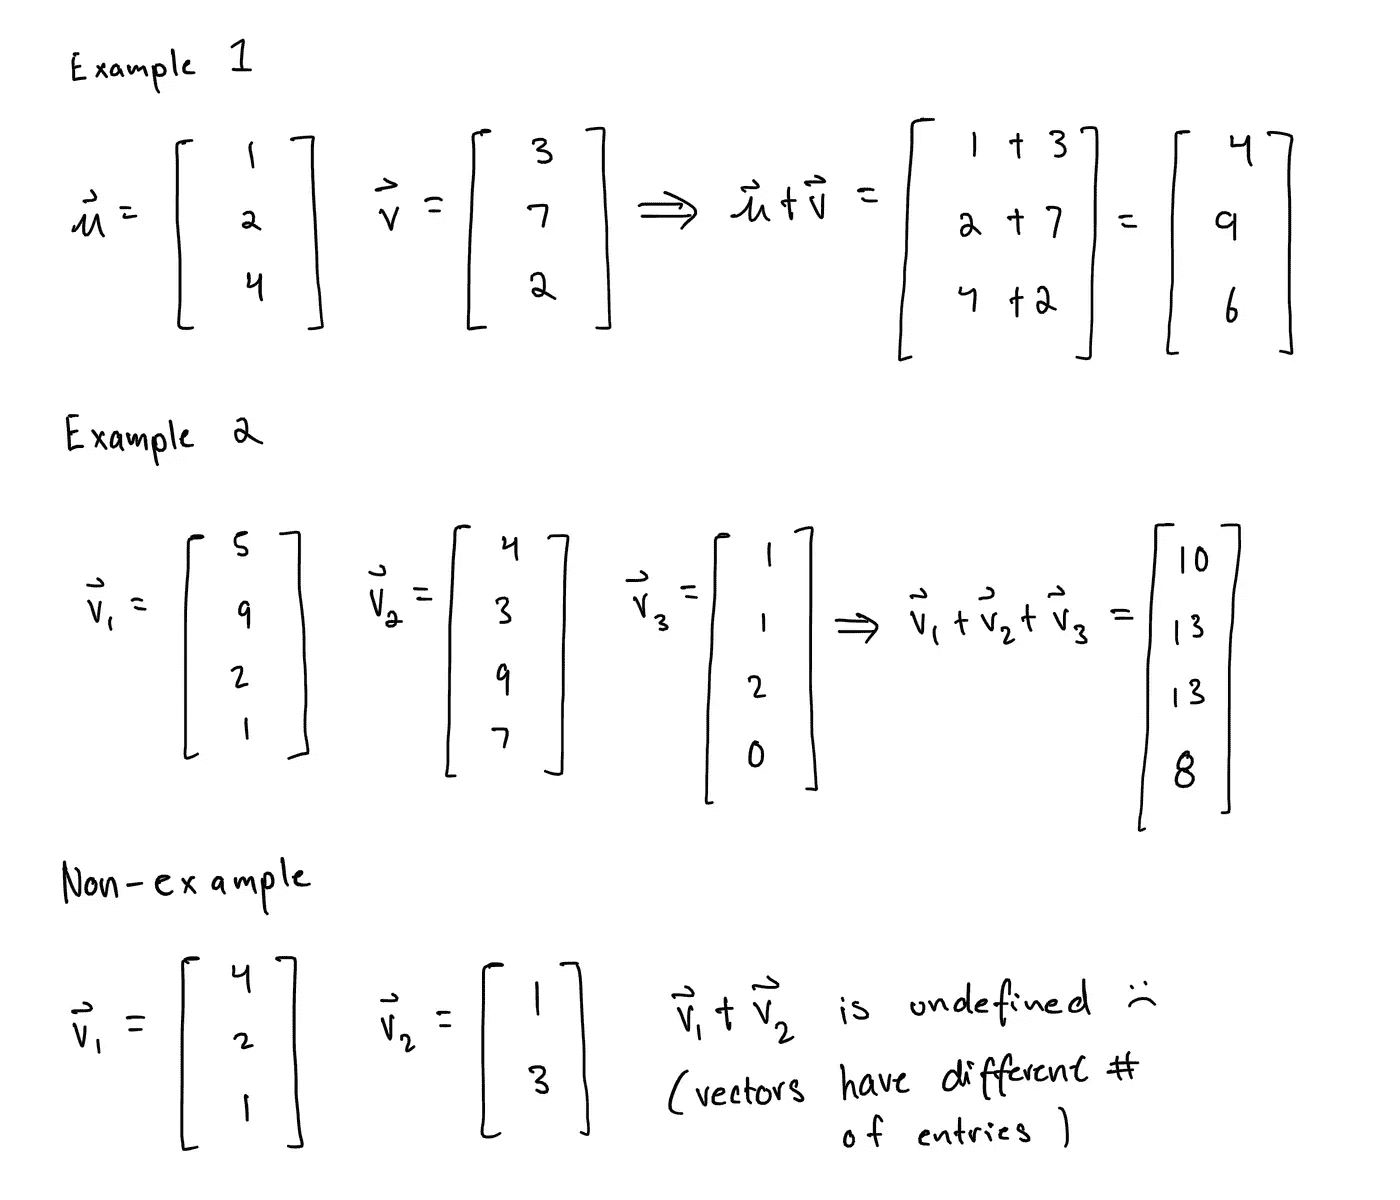 Example 1
u⃗ = [1 2 4] v⃗ = [3 7 2] ⟹ u⃗ + v⃗ = [1 + 3 2 + 7 4 + 2] = [4 9 6]
Example 2
v⃗₁ = [5 9 2 1] v⃗₂ = [4 3 9 7] v⃗₃ = [1 1 2 0] ⟹ v⃗₁ + v⃗₂ + v⃗₃ = [10 13 13 8]
Non-example
v⃗₁ = [4 2 1] v⃗₂ = [1 3] v⃗₁ + v⃗₂ is undefined :(
(vectors have different #
of entries)